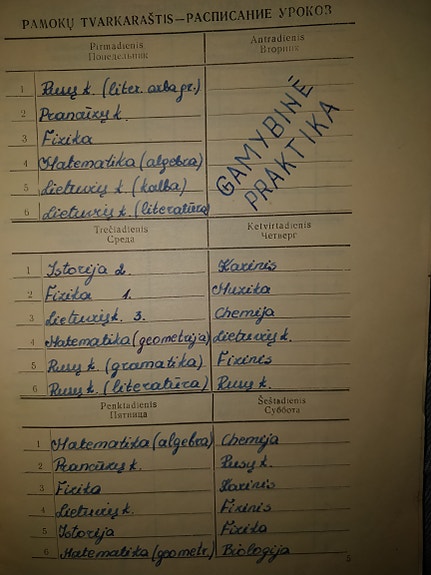 PAMOKŲ TVARKARAŠTIS—РАСПИСАНИЕ УРОКОВ
Pirmadienis
Понедельник
1 Rusų k. (liter. arba gr.)
2 Prancūzų k.
3 Fizika
4 Matematika (algebra)
5 Lietuvių k. (kalba)
6 Lietuvių k. (literatūra)
Antradienis
Вторник
GAMYBINĖ
PRAKTIKA
Trečiadienis
Среда
1 Istorija 2.
2 Fizika 1.
3 Lietuvių k. 3.
4 Matematika (geometrija)
5 Rusų k. (gramatika)
6 Rusų k. (literatūra)
Ketvirtadienis
Четверг
Karinis
Muzika
Chemija
Lietuvių k.
Fizinis
Rusų k.
Penktadienis
Пятница
1 Matematika (algebra)
2 Prancūzų k.
3 Fizika
4 Lietuvių k.
5 Istorija
6 Matematika (geometr.)
Šeštadienis
Суббота
Chemija
Rusų k.
Karinis
Fizinis
Fizika
Biologija
5